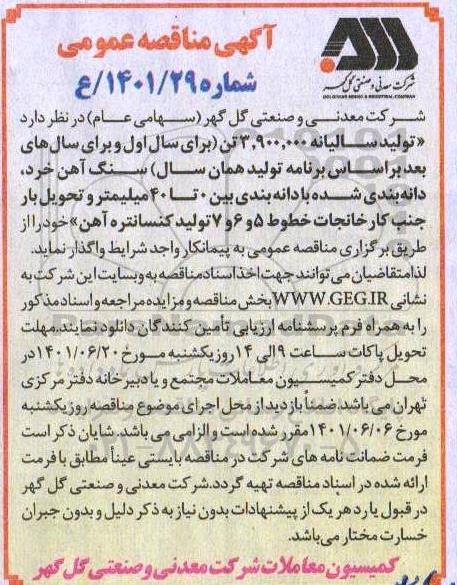 آگهی مناقصه عمومی
شماره ۱۴۰۱/۲۹/ع
شرکت معدنی و صنعتی گل گهر
GOLGOHAR MINING & INDUSTRIAL COMPANY
شرکت معدنی و صنعتی گل گهر (سهامی عام) در نظر دارد
«تولید سالیانه ۳,۹۰۰,۰۰۰ تن (برای سال اول و برای سال‌های
بعد بر اساس برنامه تولید همان سال) سنگ آهن خرد،
دانه‌بندی شده با دانه‌بندی بین ۰ تا ۴۰ میلیمتر و تحویل بار
جنب کارخانجات خطوط ۵ و ۶ و ۷ تولید کنسانتره آهن» خود را از
طریق برگزاری مناقصه عمومی به پیمانکار واجد شرایط واگذار نماید.
لذا متقاضیان می‌توانند جهت اخذ اسناد مناقصه به وبسایت این شرکت به
نشانی WWW.GEG.IR بخش مناقصه و مزایده مراجعه و اسناد مذکور
را به همراه فرم پرسشنامه ارزیابی تأمین کنندگان دانلود نمایند. مهلت
تحویل پاکات ساعت ۹ الی ۱۴ روز یکشنبه مورخ ۱۴۰۱/۰۶/۲۰ در
محل دفتر کمیسیون معاملات مجتمع و یا دبیرخانه دفتر مرکزی
تهران می‌باشد ضمناً بازدید از محل اجرای موضوع مناقصه روز یکشنبه
مورخ ۱۴۰۱/۰۶/۰۶ مقرر شده است و الزامی می‌باشد. شایان ذکر است
فرمت ضمانت نامه های شرکت در مناقصه بایستی عیناً مطابق با فرمت
ارائه شده در اسناد مناقصه تهیه گردد. شرکت معدنی و صنعتی گل گهر
در قبول یا رد هر یک از پیشنهادات بدون نیاز به ذکر دلیل و بدون جبران
خسارت مختار می‌باشد.
کمیسیون معاملات شرکت معدنی و صنعتی گل گهر